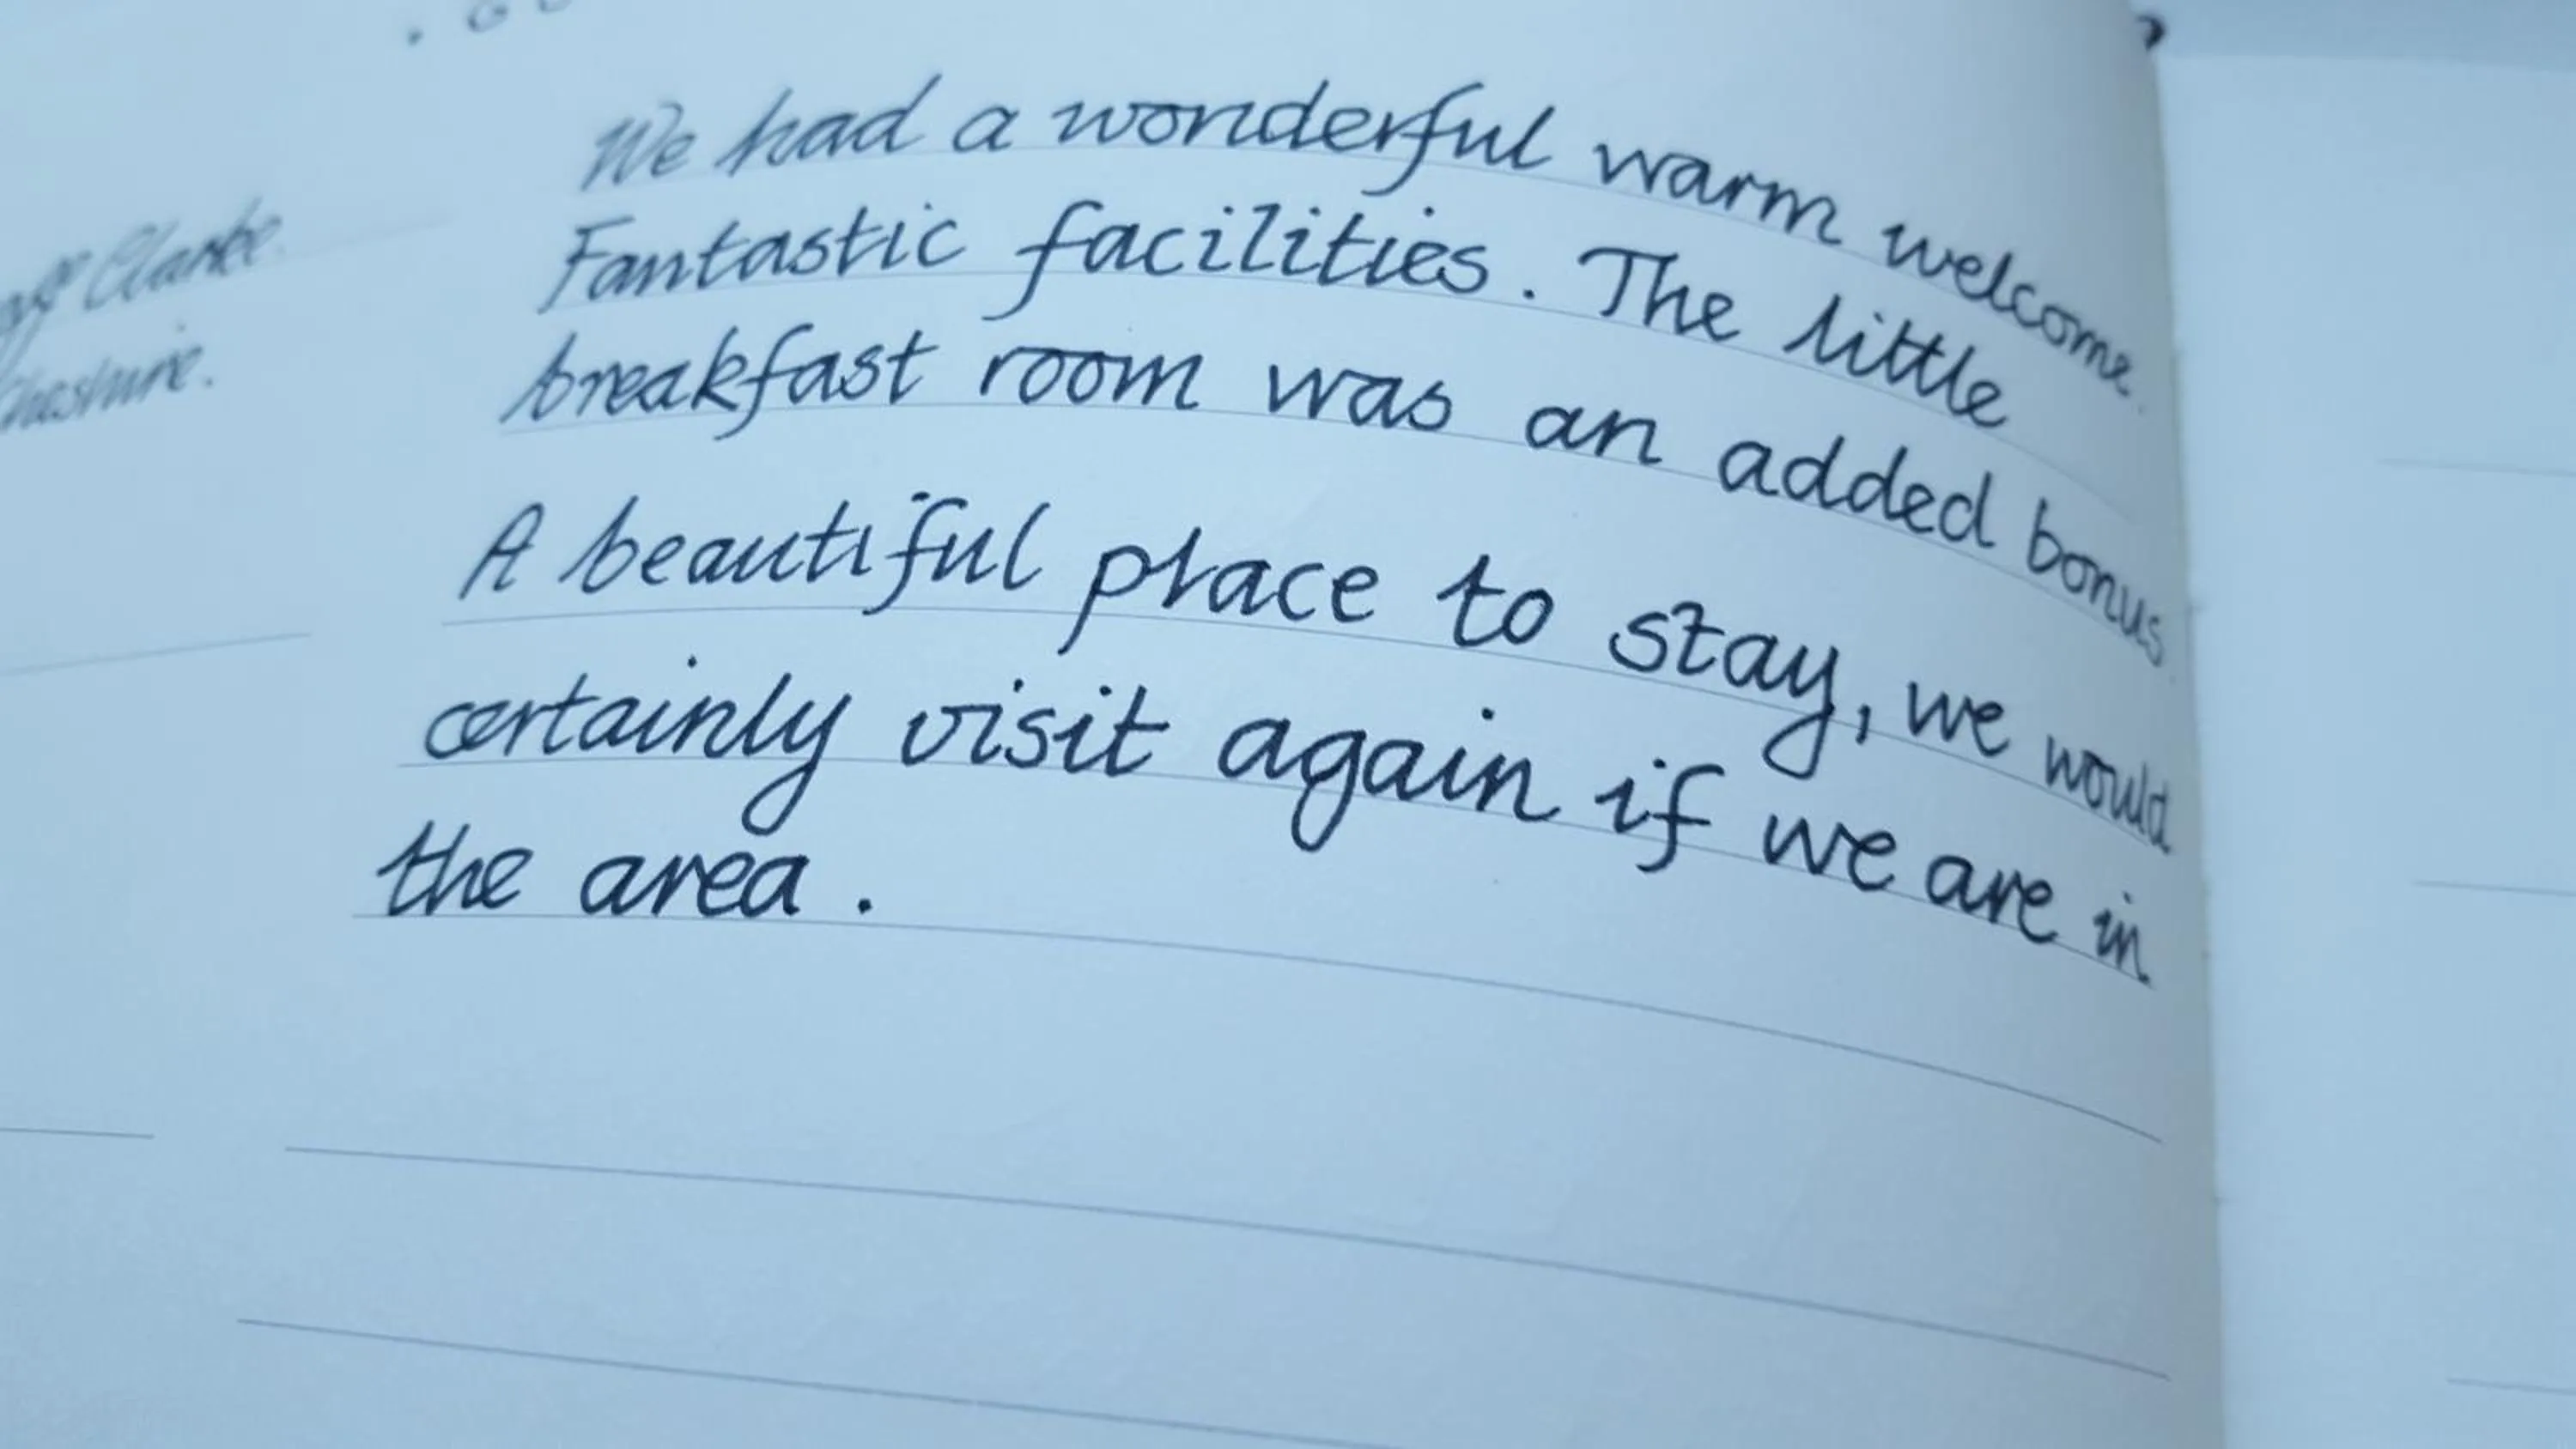 We had a wonderful warm welcome.
Fantastic facilities. The little
breakfast room was an added bonus.
A beautiful place to stay, we would
certainly visit again if we are in
the area.
Clarke.